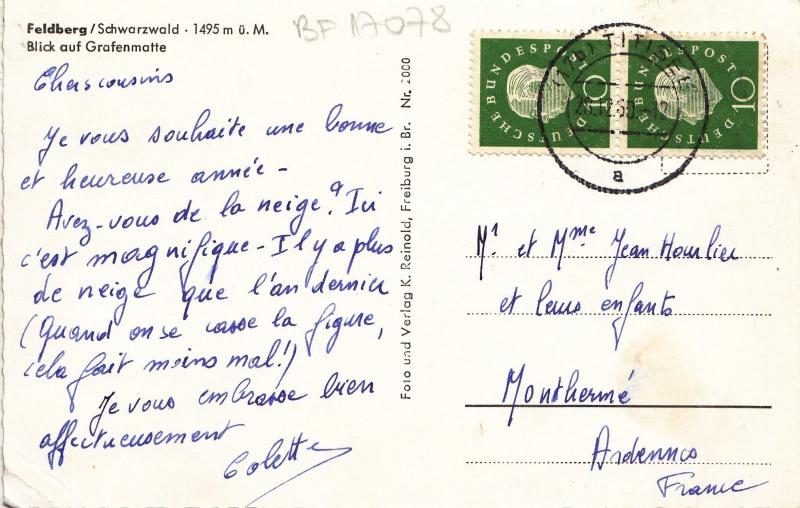 Feldberg/Schwarzwald · 1495 m ü. M.
Blick auf Grafenmatte
BF 17078
Chers cousins
Je vous souhaite une bonne
et heureuse année -
Avez-vous de la neige ? Ici
c'est magnifique - Il y a plus
de neige que l'an dernier
(Quand on se casse la figure,
cela fait moins mal!)
Je vous embrasse bien
affectueusement
Colette
Foto und Verlag K. Reinold, Freiburg i. Br. Nr. 2000
DEUTSCHE BUNDESPOST 10
DEUTSCHE BUNDESPOST 10
TITISEE
a
Mr et Mme Jean Hourlier
et leurs enfants
Monthermé
Ardennes
France